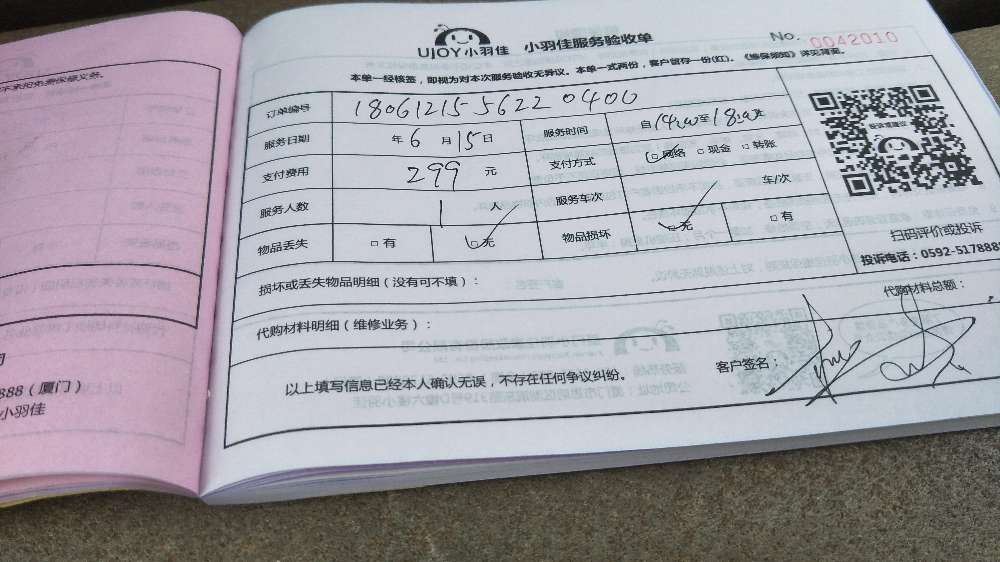 UJOY小羽佳 小羽佳服务验收单 No. 0042010
本单一经核签，即视为对本次服务验收无异议。本单一式两份，客户留存一份(红)。《维保须知》详见背面。
订单编号 180612155622 0400
服务日期 年 6 月 15 日 服务时间 自 14:00 至 18:00
支付费用 299 元 支付方式 □网络 □现金 □转账
服务人数 1 人 服务车次 车/次
物品丢失 □有 □无 物品损坏 □无 □有
扫码评价或投诉
投诉电话：0592-5178888
损坏或丢失物品明细（没有可不填）：
代购材料明细（维修业务）： 代购材料总额：
以上填写信息已经本人确认无误，不存在任何争议纠纷。 客户签名：
888（厦门）
小羽佳